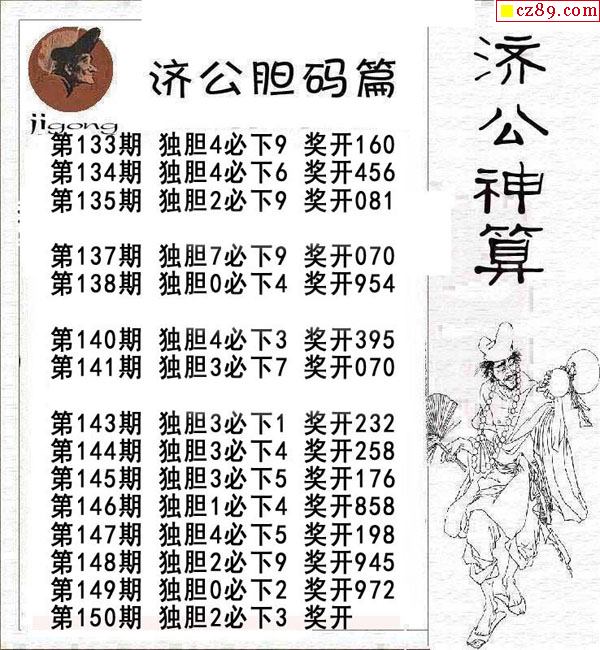 cz89.com
济公胆码篇
jigong
第133期 独胆4必下9 奖开160
第134期 独胆4必下6 奖开456
第135期 独胆2必下9 奖开081
第137期 独胆7必下9 奖开070
第138期 独胆0必下4 奖开954
第140期 独胆4必下3 奖开395
第141期 独胆3必下7 奖开070
第143期 独胆3必下1 奖开232
第144期 独胆3必下4 奖开258
第145期 独胆3必下5 奖开176
第146期 独胆1必下4 奖开858
第147期 独胆4必下5 奖开198
第148期 独胆2必下9 奖开945
第149期 独胆0必下2 奖开972
第150期 独胆2必下3 奖开
济公神算